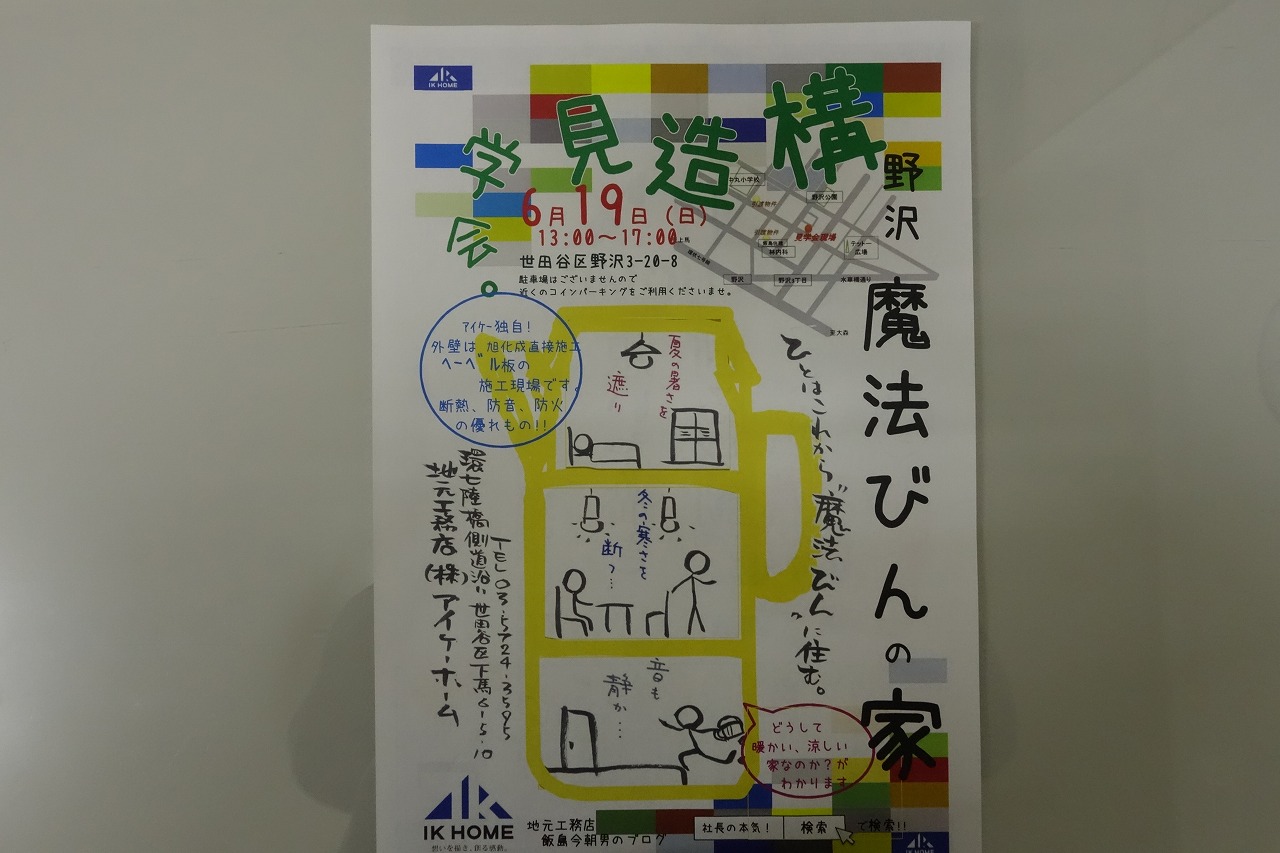 IK HOME
構造見学会。
野沢 魔法びんの家
6月19日(日)
13:00〜17:00
世田谷区野沢3-20-8
駐車場はございませんので
近くのコインパーキングをご利用くださいませ。
中丸小学校
野沢公園
引渡物件
引渡物件
見学会現場
林内科
テットー
広場
上馬
野沢
野沢3丁目
水車橋通り
至大森
アイケー独自!
外壁は 旭化成直接施工
ヘーベル板の
施工現場です。
断熱、防音、防火
の優れもの!!
ひとはこれから"魔法びん"に住む。
夏の暑さを
遮り
冬の寒さを
断つ…
音も
静か…
TEL 03-5724-3595
環七陸橋側道沿い 世田谷区下馬6-15-10
地元工務店(株)アイケーホーム
どうして
暖かい、涼しい
家なのか?が
わかります
IK HOME
想いを描き、創る感動。
地元工務店
飯島今朝男のブログ
社長の本気! 検索 で検索!!
IK HOME